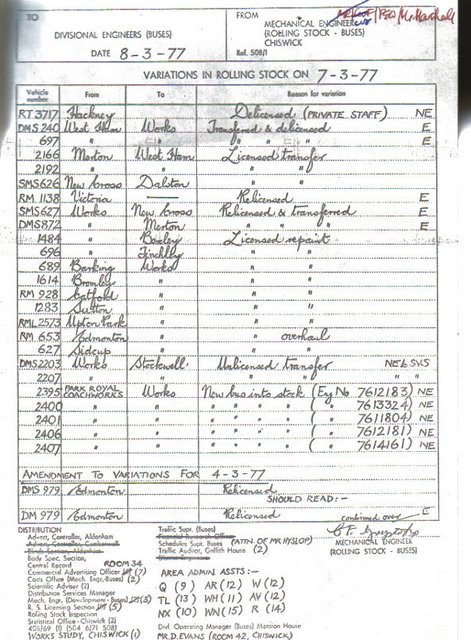 TO
FROM
Mr Marshall
DIVISIONAL ENGINEERS (BUSES)
MECHANICAL ENGINEER
(ROLLING STOCK - BUSES)
CHISWICK
DATE 8-3-77
Ref. SOB/1
VARIATIONS IN ROLLING STOCK ON 7-3-77
Vehicle number From To Reason for variation
RT 3717 Hackney Delicensed (PRIVATE STAFF) NE
DMS 240 West Ham Works Transferred & delicensed E
697 " " " " " E
2166 Merton West Ham Licensed transfer
2192 " " " "
SMS 626 New Cross Dalston " "
RM 1138 Victoria — Relicensed E
SMS 627 Works New Cross Relicensed & transferred E
DMS 872 " Merton " " " E
1484 " Bexley Licensed repaint
696 " Finchley " "
689 Barking Works " "
1614 Bromley " " "
RM 928 Catford " " "
1283 Sutton " " "
RML 2573 Upton Park " " "
RM 653 Edmonton " " overhaul
627 Sidcup " " "
DMS 2203 Works Stockwell Unlicensed transfer NE & SVS
2207 " " " " " "
2395 PARK ROYAL COACHWORKS Works New bus into stock (Eng No 7612183) NE
2400 " " " " " " ( " 7613324) NE
2401 " " " " " " ( " 7611804) NE
2406 " " " " " " ( " 7612181) NE
2407 " " " " " " ( " 7614161) NE
AMENDMENT TO VARIATIONS FOR 4-3-77
DMS 979 Edmonton Relicensed
SHOULD READ:-
DM 979 Edmonton Relicensed E
continued over
MECHANICAL ENGINEER
(ROLLING STOCK - BUSES)
DISTRIBUTION
Advert. Controller, Aldenham
Body Spec. Section,
Central Record ROOM 34
Commercial Advertising Officer (7)
Costs Officer (Mech. Engr.-Buses) (2)
Scientific Adviser (2)
Distribution Services Manager
Mech. Engr. (Development - Buses) (3)
R. S. Licensing Section (5)
Rolling Stock Inspection
Statistical Office - Chiswick (2)
405/69 (1) 504 6/71 508)
WORKS STUDY, CHISWICK (1)
Traffic Supt. (Buses)
Schedules Supt. Buses (ATTN. OF MR HYSLOP)
Traffic Auditor, Griffith House (2)
AREA ADMIN ASSTS:-
Q (9) AR (12) W (12)
TL (13) WH (11) AV (12)
NX (10) WN (15) R (14)
Divl. Operating Manager (Buses) Manston House
MR. D. EVANS (ROOM 42, CHISWICK)